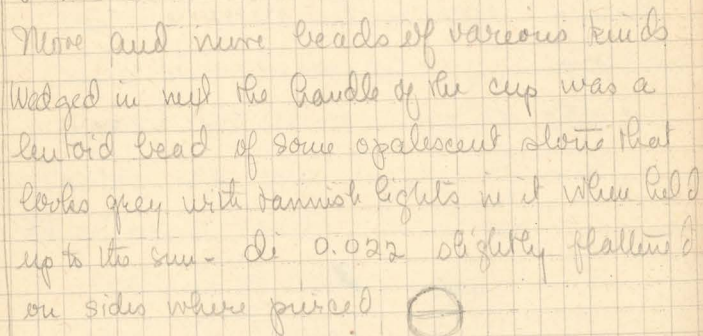 More and more beads of various kinds
Wedged in next the handle of the cup was a
lentoid bead of some opalescent stone that
looks grey with tannish lights in it when held
up to the sun - di 0.022 slightly flattened
on sides where pierced